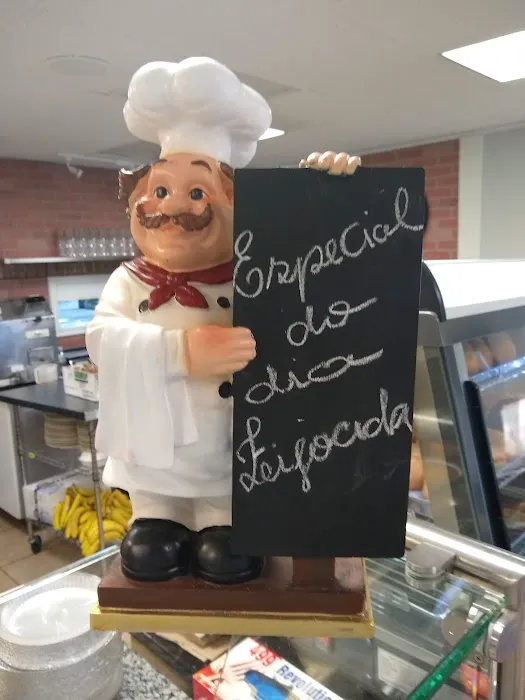 Especial
do
dia
Feijocada
499 Revolution